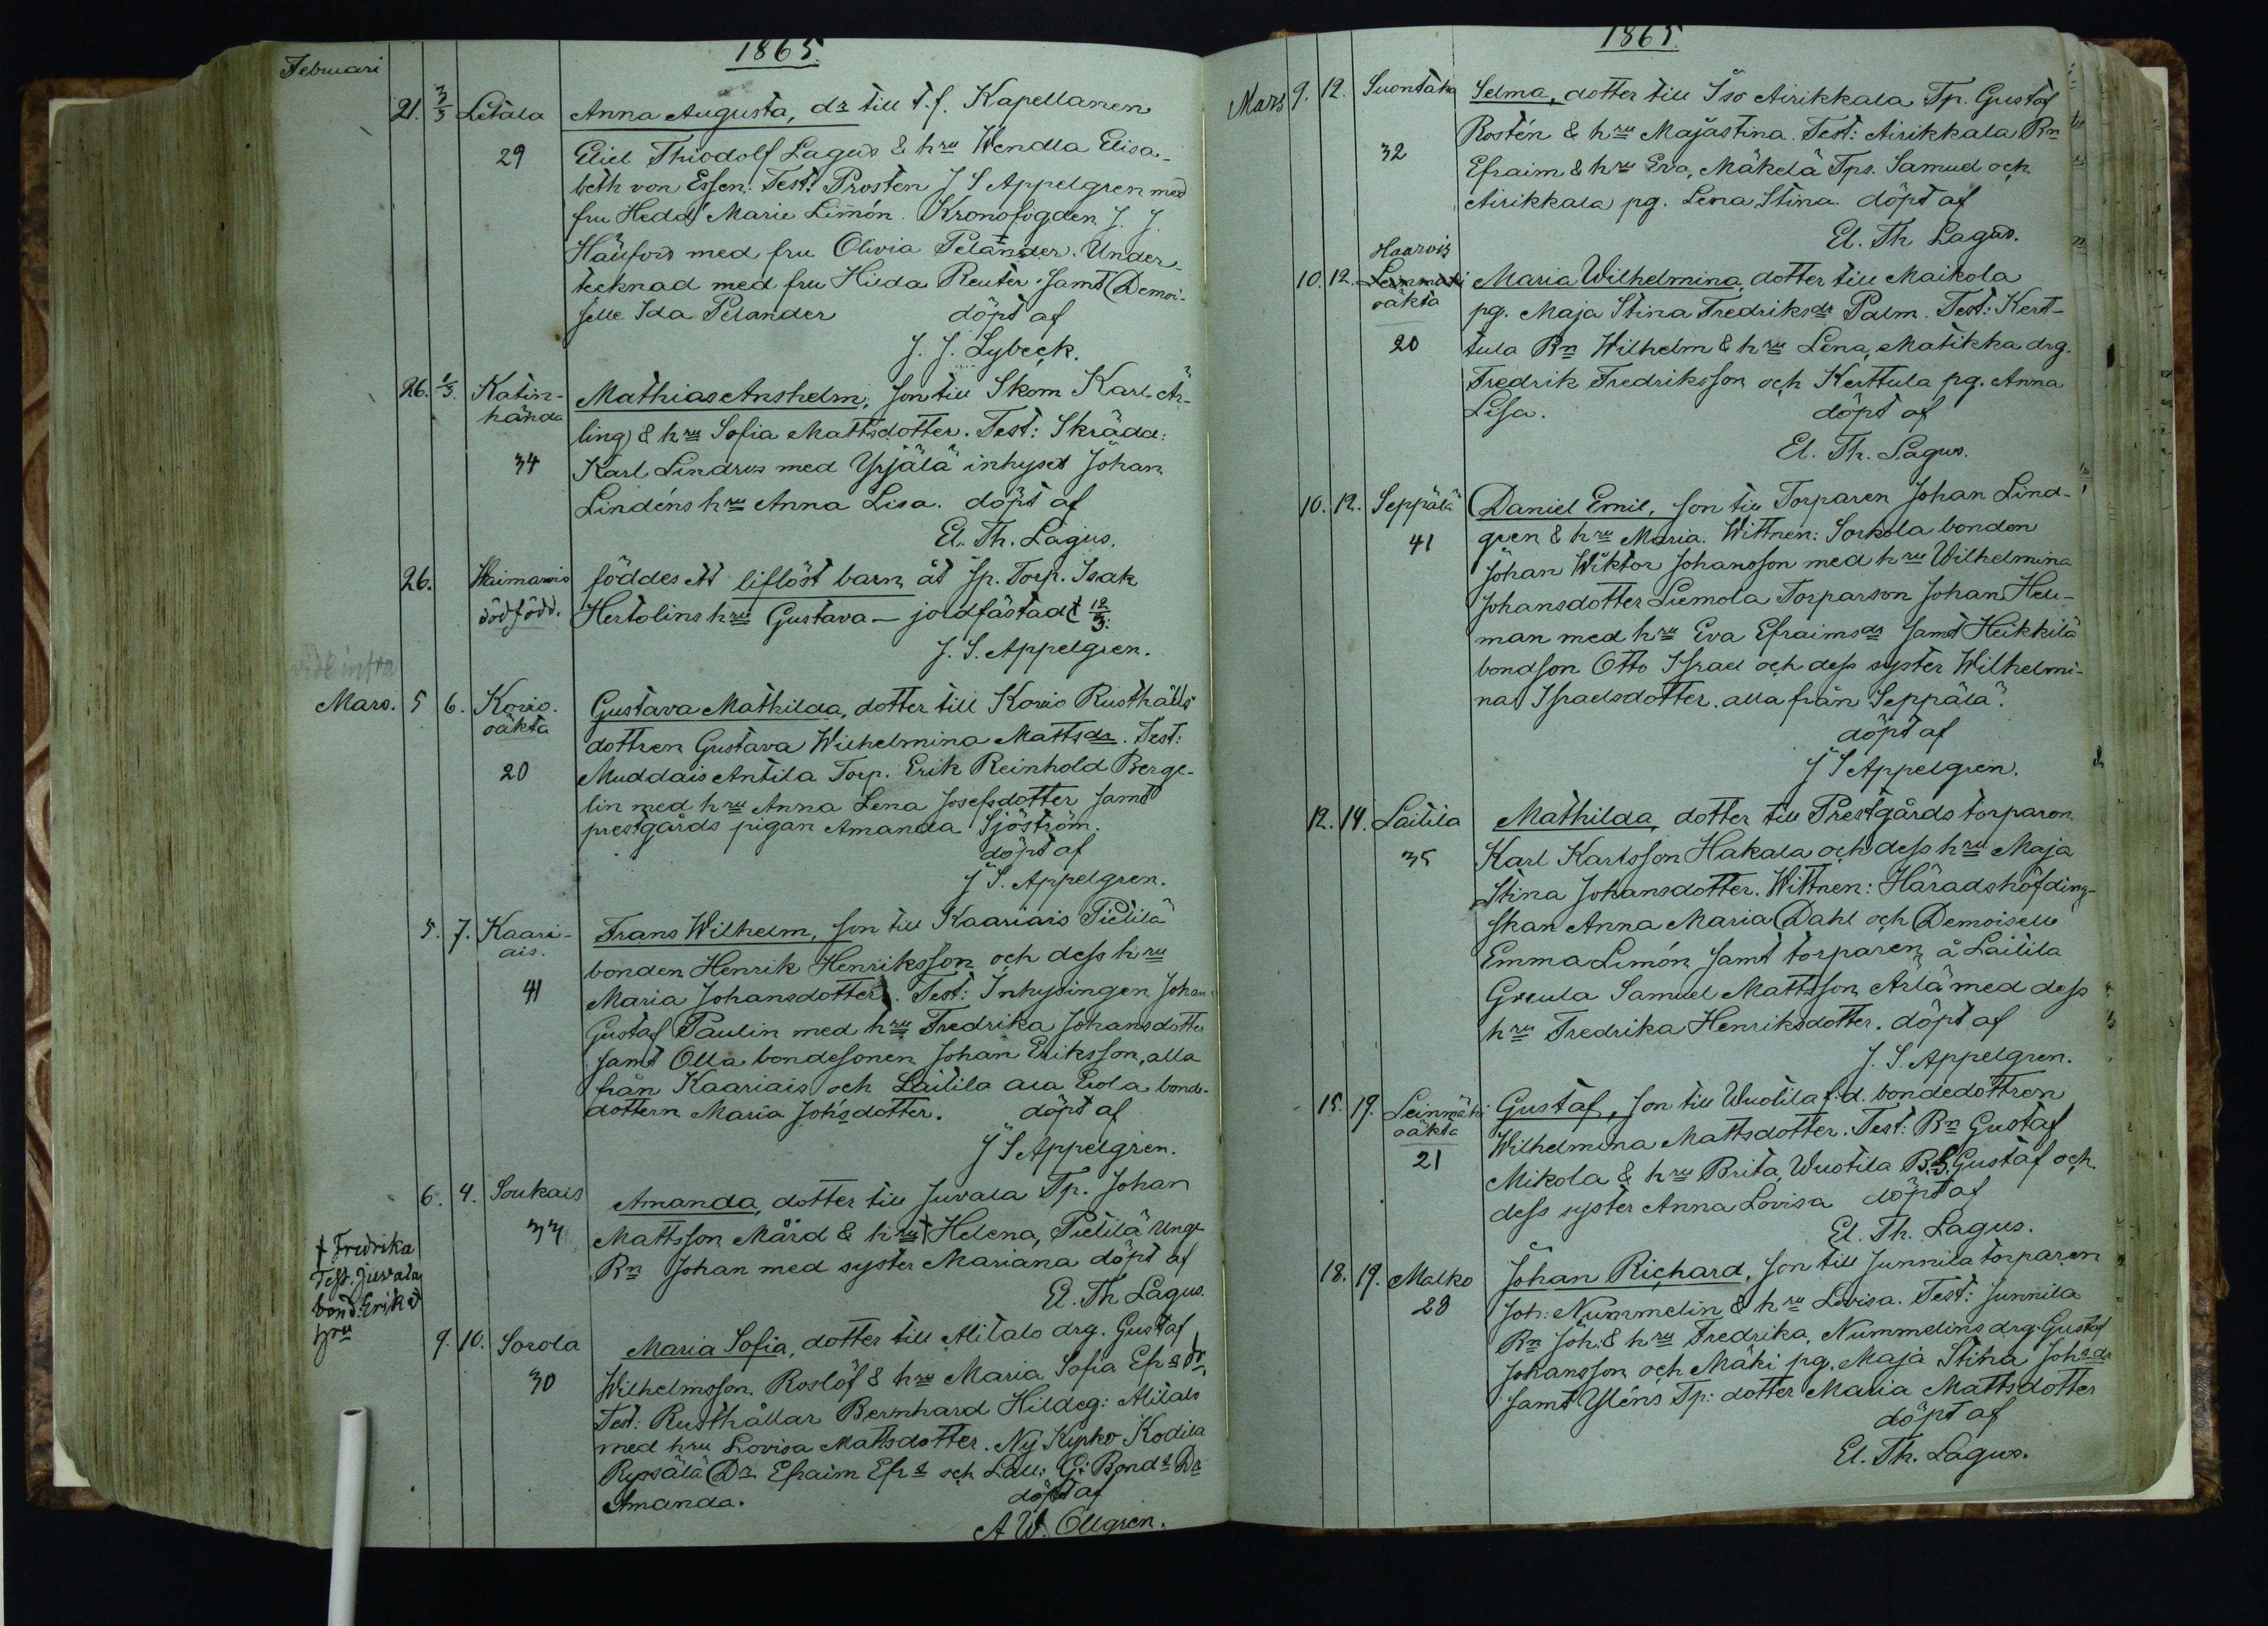 1865.
Februari
21. 3/3 Letala Anna Augusta, dr till t.f. Kapellanen
29 Eliel Thiodolf Lagus & hru Wendla Elisa-
beth von Essen. Test: Prosten J S Appelgren med
fru Hedd. Marie Limón. Kronofogden J. J.
med fru Olivia Pelander. Under-
tecknad med fru Hilda Reuter samt Demoi-
selle Ida Pelander döpt af
J. J. Lybeck.
26. 1/3. Katin-
hända Mathias Anshelm, son till Skom Karl Är-
ling & hru Sofia Mattsdotter. Test: Skrädd:
34 Karl Lindros med Yrjälä inhyses Johan
Lindéns hru Anna Lisa. döpt af
El. Th. Lagus.
26. Waimaro föddes ett liflöst barn åt Sp. Torp. Isak
dödfödd. Hertolins hru Gustava - jordfästadt 12/3.
J. S. Appelgren.
vide infra
Mars. 5 6. Kovio. Gustava Mathilda, dotter till Kovio Rusthålls
oäkta dottren Gustava Wilhelmina Mattsdr. Test:
20 Muddais Antila Torp. Erik Reinhold Berge-
lin med hru Anna Lena Josefsdotter samt
prestgårds pigan Amanda Sjöström.
döpt af
J S. Appelgren.
5. 7. Kaari-
ais. Frans Wilhelm, son till Kaariais Pietilä
bonden Henrik Henriksson och dess hru
41 Maria Johansdotter. Test: Inhysingen Johan
Gustaf Paulin med hru Fredrika Johansdotter
samt Olla bondesonen Johan Eriksson, alla
från Kaariais och Laitila ala Erola bonde-
dottern Maria Johsdotter. döpt af
J S Appelgren.
6. 4. Soukais Amanda, dotter till Juvala Tp. Johan
33 Mattsson Mård & hru † Helena, Pietilä unge
Bn Johan med syster Mariana döpt af
El. Th Lagus.
† Fredrika
Test. Juvala
bond: Erik &
hru
9. 10. Sorola Maria Sofia, dotter till Alitalo drg. Gustaf
30 Wilhelmsson Roslöf & hru Maria Sofia Efr s dr,
Test: Rusthållar Bernhard Hildeg: Alitalo
med hru Lovisa Mattsdotter. Ny Kyrko Kodila
Ryssälä Dr Efraim Efr s och Lall: G: Bond s Dr
Amanda. döpt af
A W. Ollgren.
1865.
Mars 9. 12. Suontaka Selma, dotter till Iso Airikkala Tp. Gustaf
Rostén & hru Majastina. Test: Airikkala Bn
32 Efraim & hru Eva, Mäkelä Tps. Samuel och
Airikkala pg. Lena Stina. döpt af
El. Th Lagus.
Haarois
10. 12. Leinmäki Maria Wilhelmina, dotter till Maikola
oäkta pg. Maja Stina Fredriksdr Palm. Test: Kert-
20 tula Bn Wilhelm & hru Lena, Matikka drg.
Fredrik Fredriksson och Kerttula pg. Anna
Lisa. döpt af
El. Th. Lagus.
10. 12. Seppälä Daniel Emil, son till Torparen Johan Lind-
41 gren & hru Maria. Wittnen: Sorkola bonden
Johan Wiktor Johansson med hru Wilhelmina
Johansdotter Liemola Torparson Johan Hell-
man med hru Eva Efraimsdr samt Heikkilä
bondson Otto Israel och dess syster Wilhelmi-
na Israelsdotter. alla från Seppälä.
döpt af
J S Appelgren.
12. 14. Laitila Mathilda, dotter till Prestgårds torparen
35 Karl Karlsson Hakala och dess hru Maja
Stina Johansdotter. Wittnen: Häradshöfding-
skan Anna Maria Dahl och Demoiselle
Emma Limón samt torparen å Laitila
Greula Samuel Mattsson Ärlä med dess
hru Fredrika Henriksdotter. döpt af
J. S. Appelgren.
15. 19. Leinmäki Gustaf, son till Wuotila f.d. bondedottren
oäkta Wilhelmina Mattsdotter. Test: Bn Gustaf
21 Mikola & hru Brita, Wuotila B.S. Gustaf och
dess syster Anna Lovisa döpt af
El. Th. Lagus.
18. 19. Malko Johan Richard, son till Junnila torparen
28 Joh: Nummelin & hru Lovisa. Test: Junnila
Bn Joh. & hru Fredrika, Nummelins drg. Gustaf
Johansson och Mäki pg. Maja Stina Johsdr
samt Yléns Tp: dotter Maria Mattsdotter
döpt af
El. Th. Lagus.